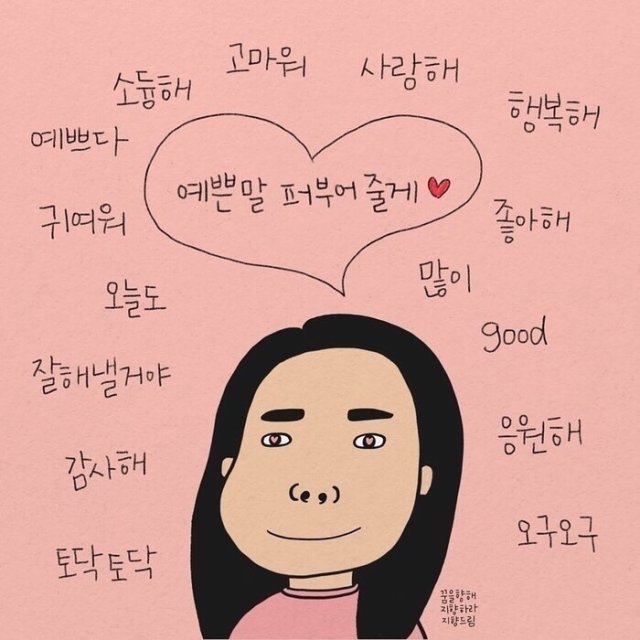 고마워
사랑해
소듕해
행복해
예쁘다
예쁜말 퍼부어 줄게
귀여워
좋아해
많이
오늘도
good
잘해낼거야
응원해
감사해
오구오구
토닥토닥
꿈을향해
지향하라
지향드림